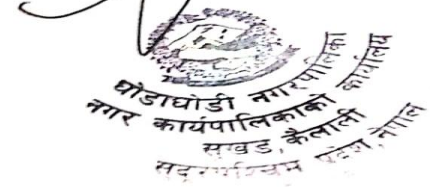 घोडाघोडी नगरपालिका
नगर कार्यपालिकाको कार्यालय
सुखड, कैलाली
प्रदेश, नेपाल